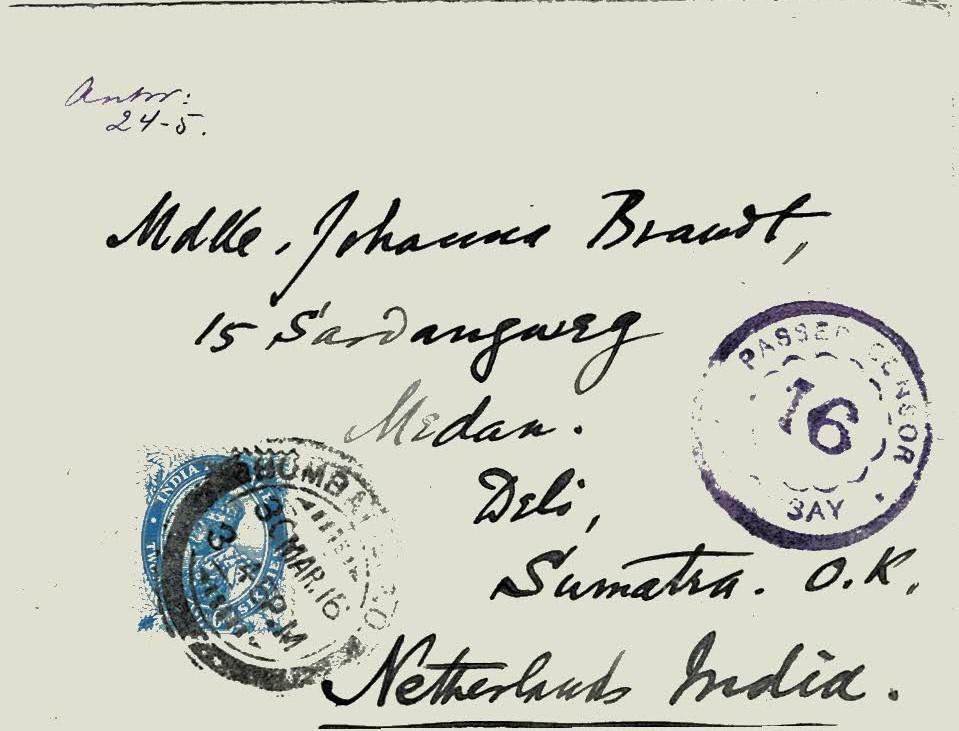 Antw:
24-5.
Mdlle. Johanna Brandt,
15 Serdangweg
Medan.
Deli,
Sumatra. O.K.
Netherlands India.
PASSED CENSOR
16
BAY
INDIA
BOMBAY
30 MAR. 16
3
P.M